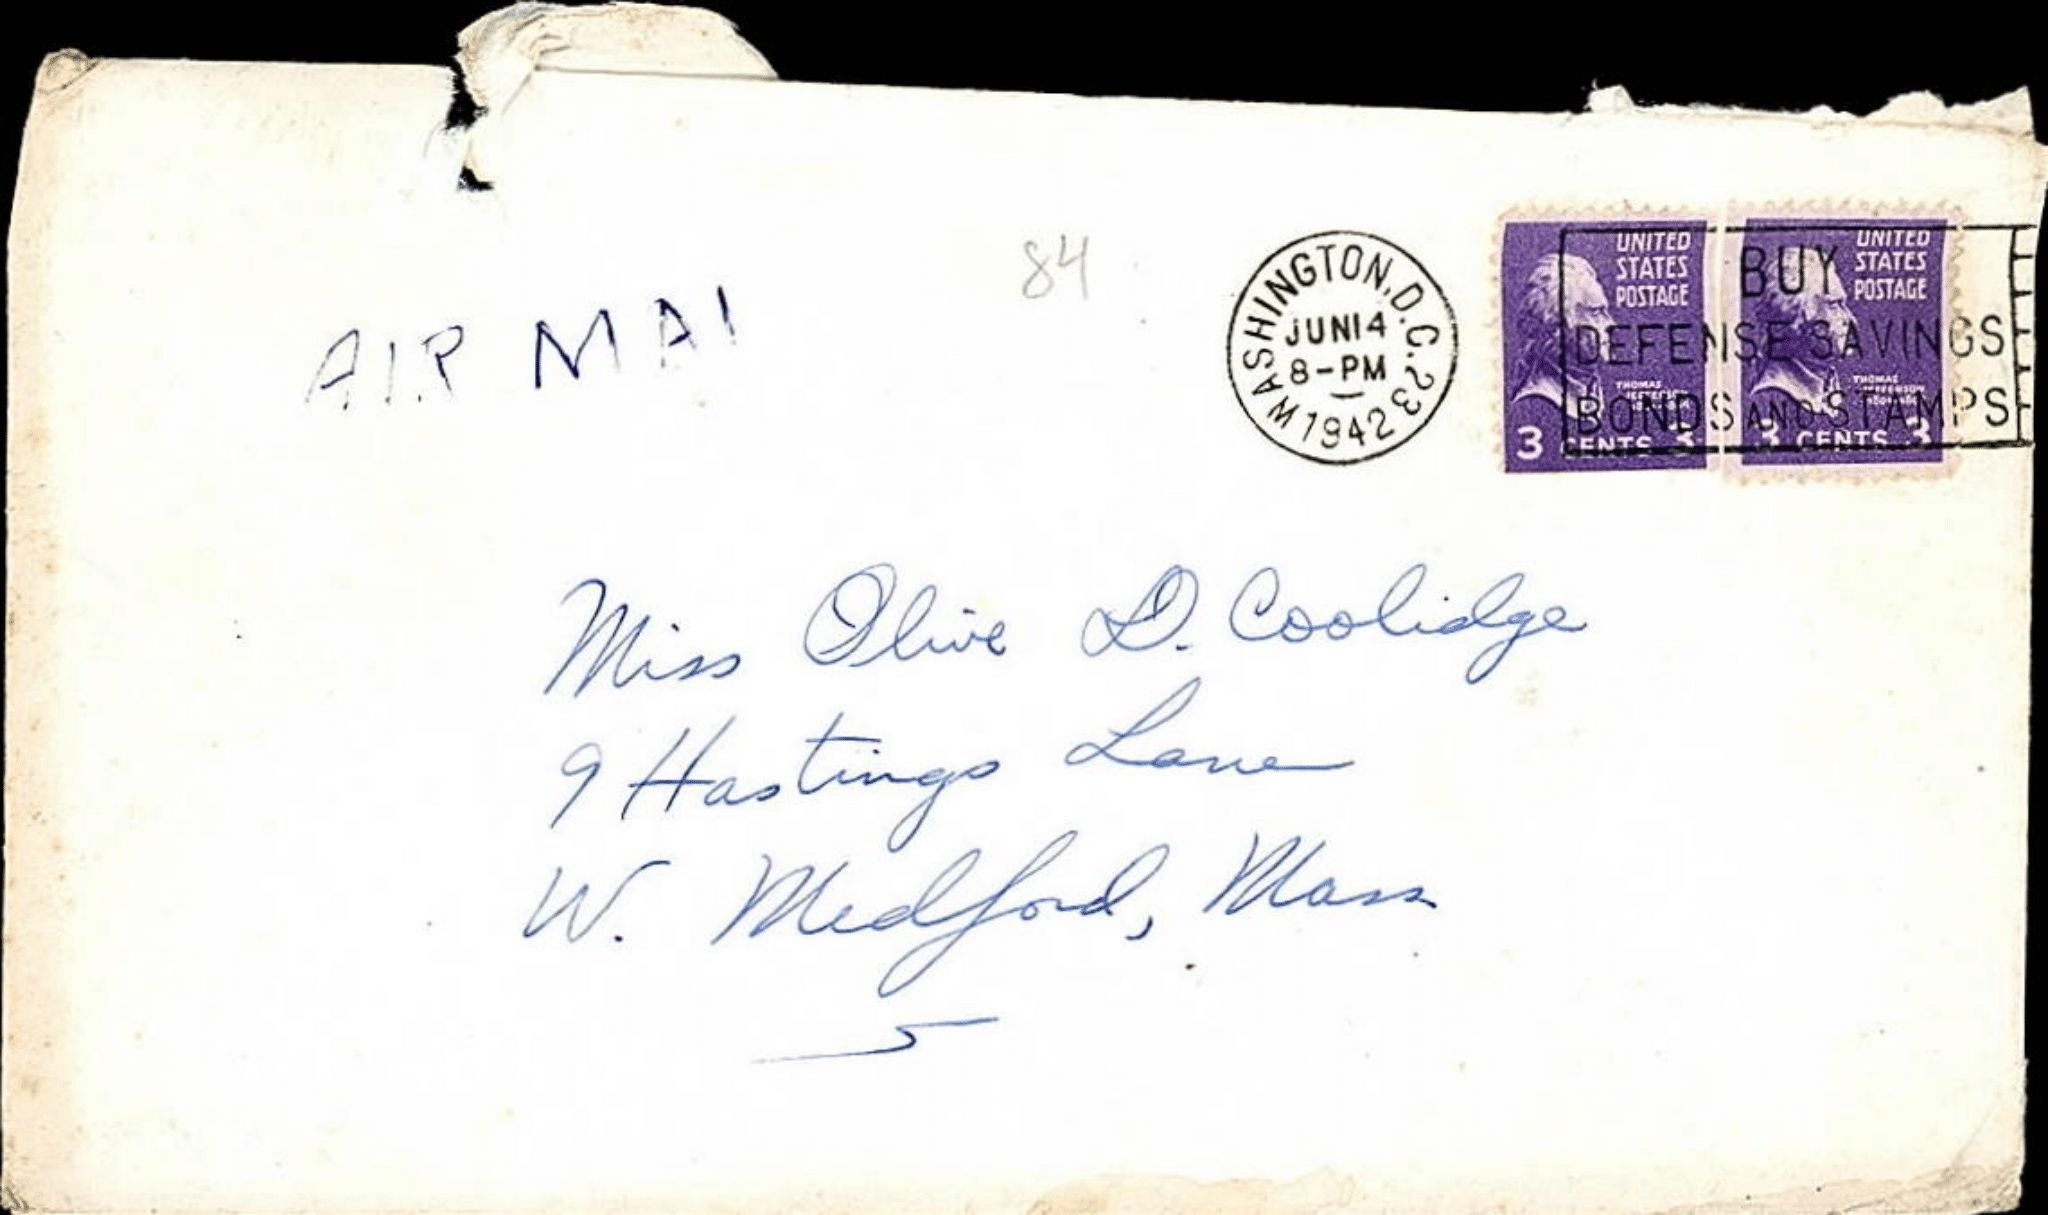 84
AIR MAI
WASHINGTON, D.C. 23
JUN 14
8-PM
1942
UNITED
STATES
POSTAGE
THOMAS
JEFFERSON
3 CENTS 3
UNITED
STATES
POSTAGE
THOMAS
JEFFERSON
3 CENTS 3
BUY
DEFENSE SAVINGS
BONDS AND STAMPS
Miss Olive D. Coolidge
9 Hastings Lane
W. Medford, Mass